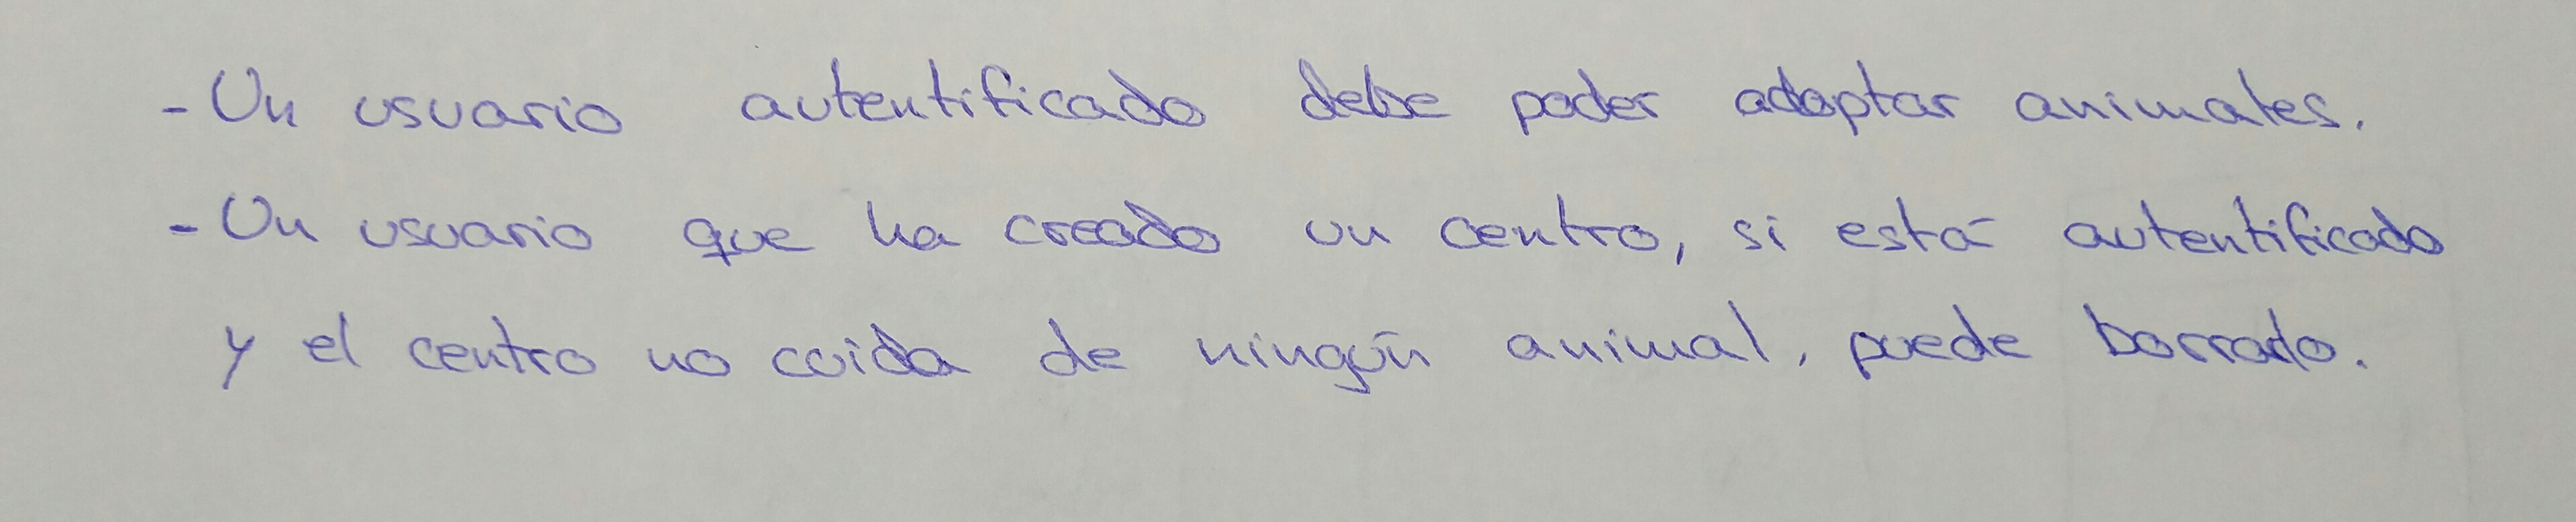 - Un usuario autentificado debe poder adoptar animales.
- Un usuario que ha creado un centro, si está autentificado
y el centro no cuida de ningún animal, puede borrado.